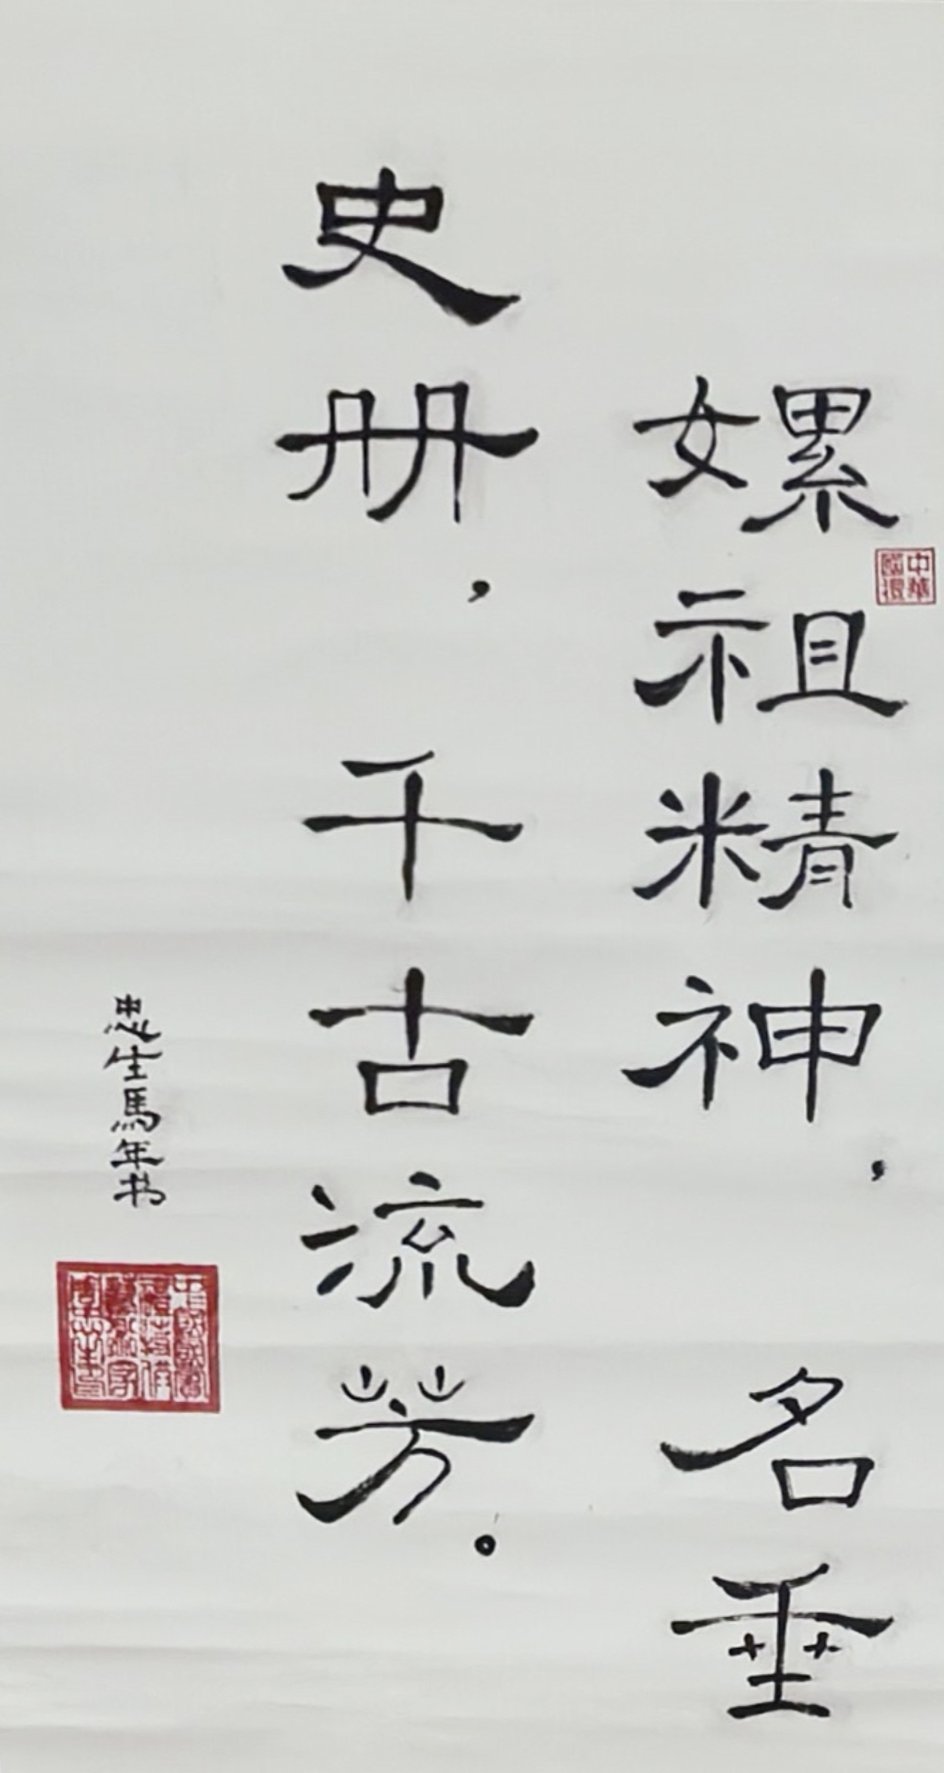 嫘祖精神，名垂
史册，千古流芳。
忠生馬年书